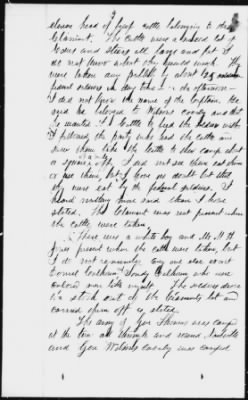 eleven head of beef cattle belonging to the
Claimant. The cattle were a mixed lot of
and steers all large and fat I
do not know what they would weigh. They
were taken publicly by about 25
soldiers in day time in the afternoon
I did not know the name of the Captain. He
said he belonged to Wilsons cavalry and that
he wanted the cattle to feed the with
I followed the party who had the cattle and
saw them take the cattle to their camp about
a square off. I did not see them eat them
or use them, but I have no doubt but that
they were eat by the federal soldiers. I
heard nothing more said than I have
stated. The Claimant was not present when
the cattle were taken.
There was a white boy and Mr M H
present when the cattle were taken, but
I do not remember any one else except
Calhoun & Sandy Calhoun who were
colored men like myself. The soldiers drove
the stock out of the Claimants lot and
carried them off as stated.
The army of Gen Thomas was camped
at the time all through and round Nashville
and Gen Wilsons Cavalry was camped